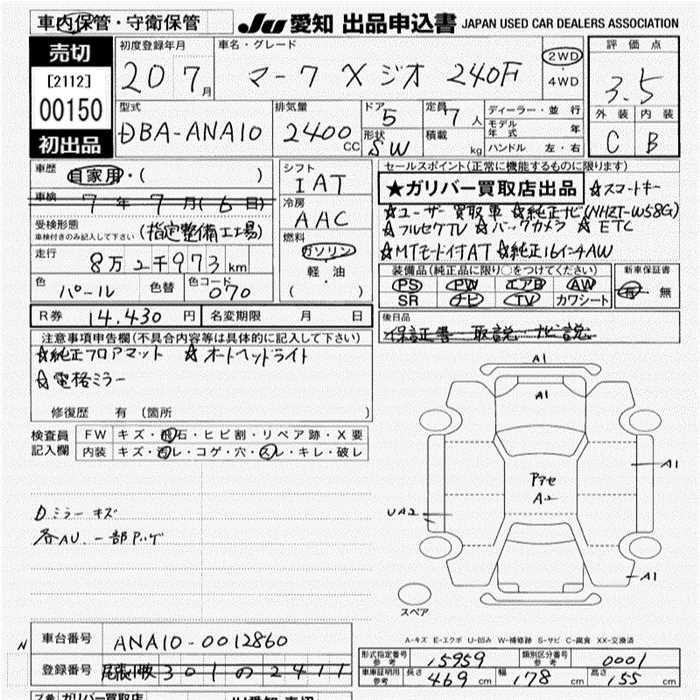 車内保管・守衛保管
JU 愛知 出品申込書 JAPAN USED CAR DEALERS ASSOCIATION
売切
[2112]
00150
初出品
初度登録年月 20 7月
車名・グレード マークXジオ 240F
2WD・4WD
評価点 3.5
外装 内装
C B
型式 DBA-ANA10
排気量 2400cc
ドア 5 形状 SW
定員 7人 積載 kg
ディーラー・並行
モデル年式 年
ハンドル 左・右
車歴 自家用・( )
車検 7年7月(6日)
受検形態 車検付きのみ記入して下さい (指定整備工場)
走行 8万2千973km
色 パール 色替 色コード 070
シフト IAT
冷房 AAC
燃料 ガソリン・軽油・( )
セールスポイント(正常に機能するものに限ります)
★ガリバー買取店出品 ☆スマートキー
☆ユーザー買取車 ☆純正ナビ(NHZT-W58G)
☆フルセグTV ☆バックカメラ ☆ETC
☆MTモード付AT ☆純正16インチAW
装備品(純正品に限り○をつけてください) 新車保証書
PS PW エアB AW 有・無
SR ナビ TV カワシート
R券 14,430円 名変期限 月 日
後日品
保証書 取説 ナビ説
注意事項申告欄(不具合内容等は具体的に記入して下さい)
☆純正フロアマット ☆オートヘッドライト
☆電格ミラー
修復歴 有 (箇所 )
検査員記入欄 FW キズ・飛石・ヒビ割・リペア跡・X要
内装 キズ・汚レ・コゲ・穴・スレ・キレ・破レ
A1
A1
A1
アセ
A2
UA2
A1
スペア
Dミラーキズ
各AU、一部アリ
A-キズ E-エクボ U-凹み W-補修跡 S-サビ C-腐食 XX-交換済
車台番号 ANA10-0012860
登録番号 尾張小牧 301 の 2411
形式指定番号 参考 15959 類別区分番号 参考 0001
車庫証明用 参考 長さ 469cm 幅 178cm 高さ 155cm
ガリバー買取店
JU愛知